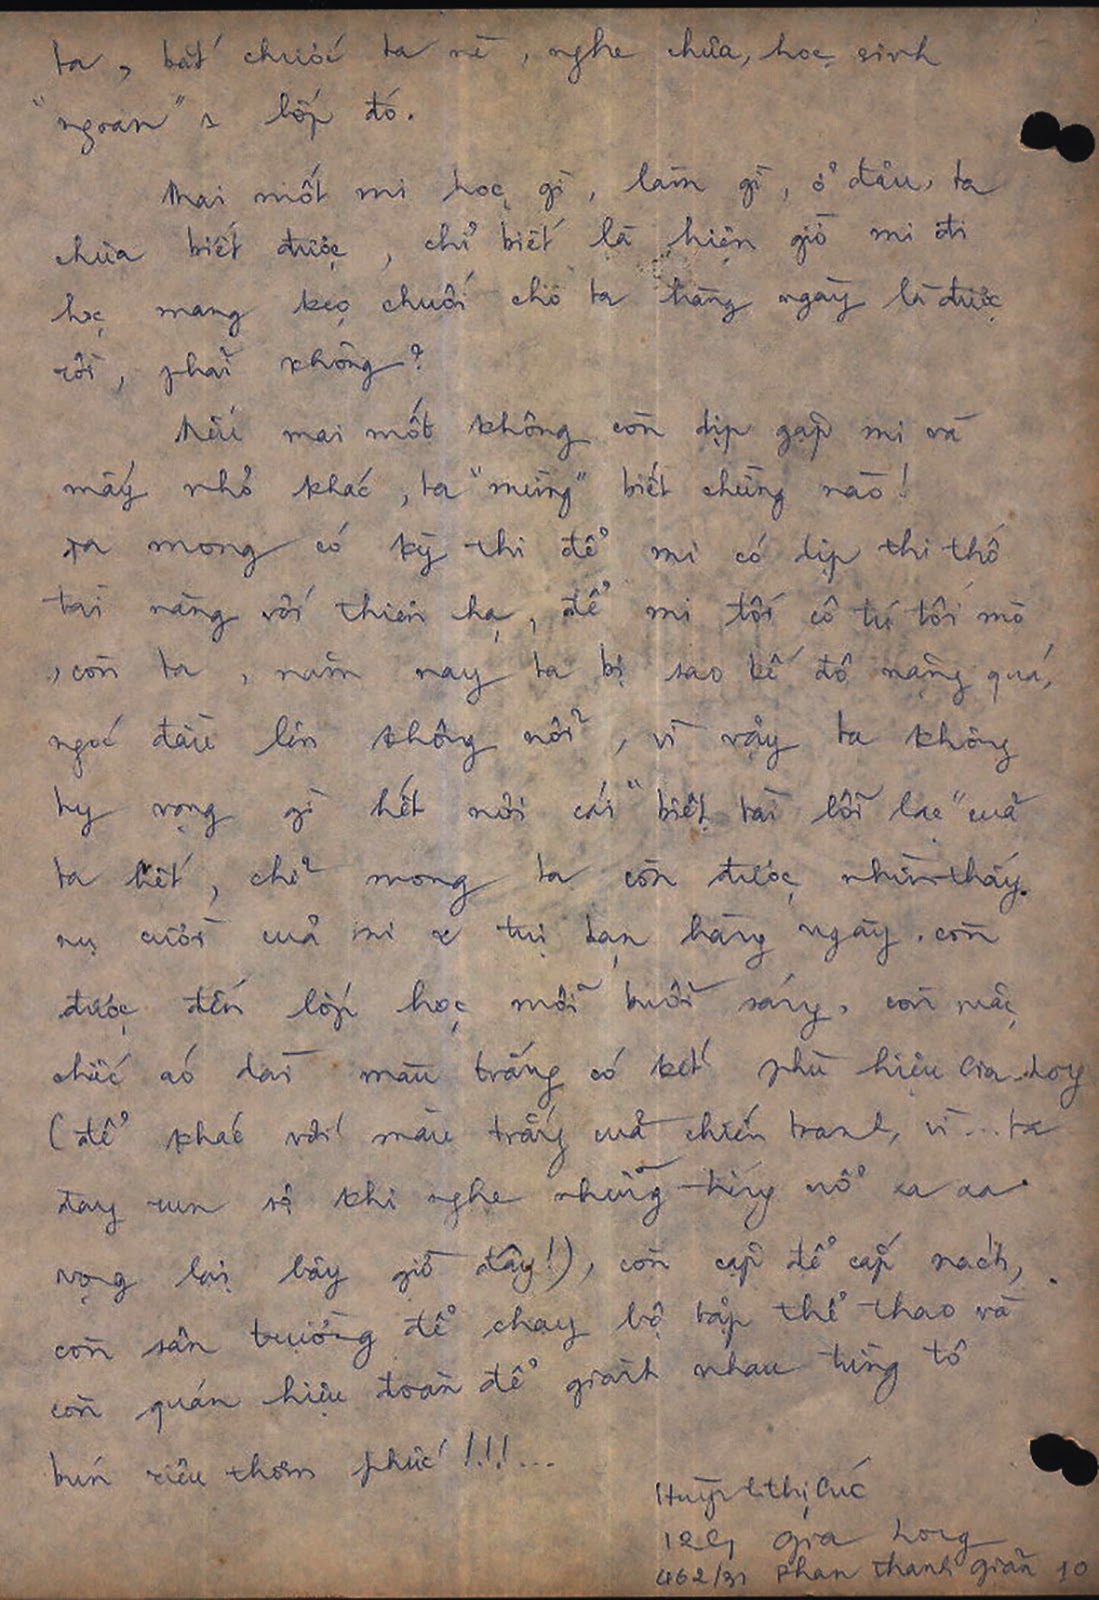 ta, bắt chước ta nè, nghe chưa, học sinh
"ngoan" s lớp đó.
Mai mốt mi học gì, làm gì, ở đâu, ta
chưa biết được, chỉ biết là hiện giờ mi đi
học mang kẹo chuối cho ta hàng ngày là được
rồi, phải không?
Nếu mai mốt không còn dịp gặp mi và
mấy nhỏ khác, ta "mừng" biết chừng nào!
Ta mong có kỳ thi để mi có dịp thi thố
tài năng với thiên hạ, để mi tới cô tú tối mò
, còn ta, năm nay ta bị sao kế đô nặng quá,
ngóc đầu lên không nổi, vì vậy ta không
hy vọng gì hết nơi cái "biệt tài lỗi lạc" của
ta hết, chỉ mong ta còn được nhìn thấy
nụ cười của mi & tụi bạn hàng ngày. còn
được đến lớp học mỗi buổi sáng, còn mặc
chiếc aó dài màu trắng có kết phù hiệu Gia Long
(để khác với màu trắng của chiến tranh, vì ... ta
đang run sợ khi nghe những tiếng nổ xa xa
vọng lại bây giờ đây!), còn cặp để cắp sách,
còn sân trường để chạy bộ tập thể thao và
còn quán hiệu đoàn để giành nhau từng tô
bún riêu thơm phức!!!...
Huỳnh thị Cúc
Gia Long
462/31 Phan Thanh Giản 10